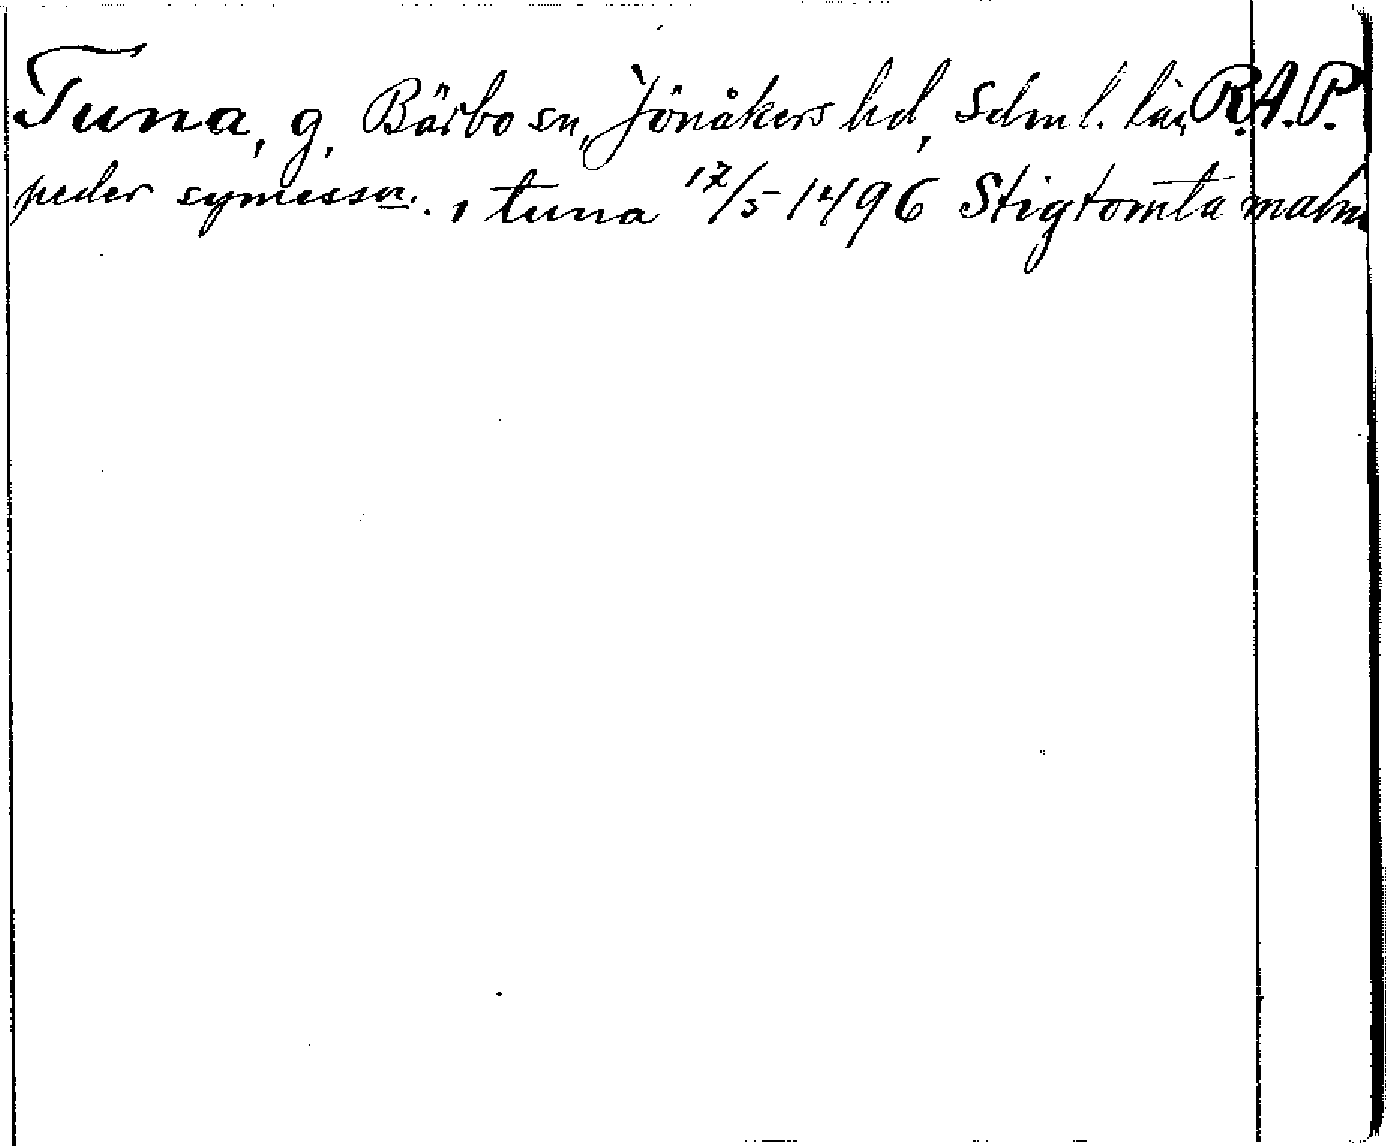 Tuna, g, Bärbo sn, Jönåkers hd, Sdml. län, R.A.P.
peder symesson. i tuna 17/5 1496 Stigtomta malm